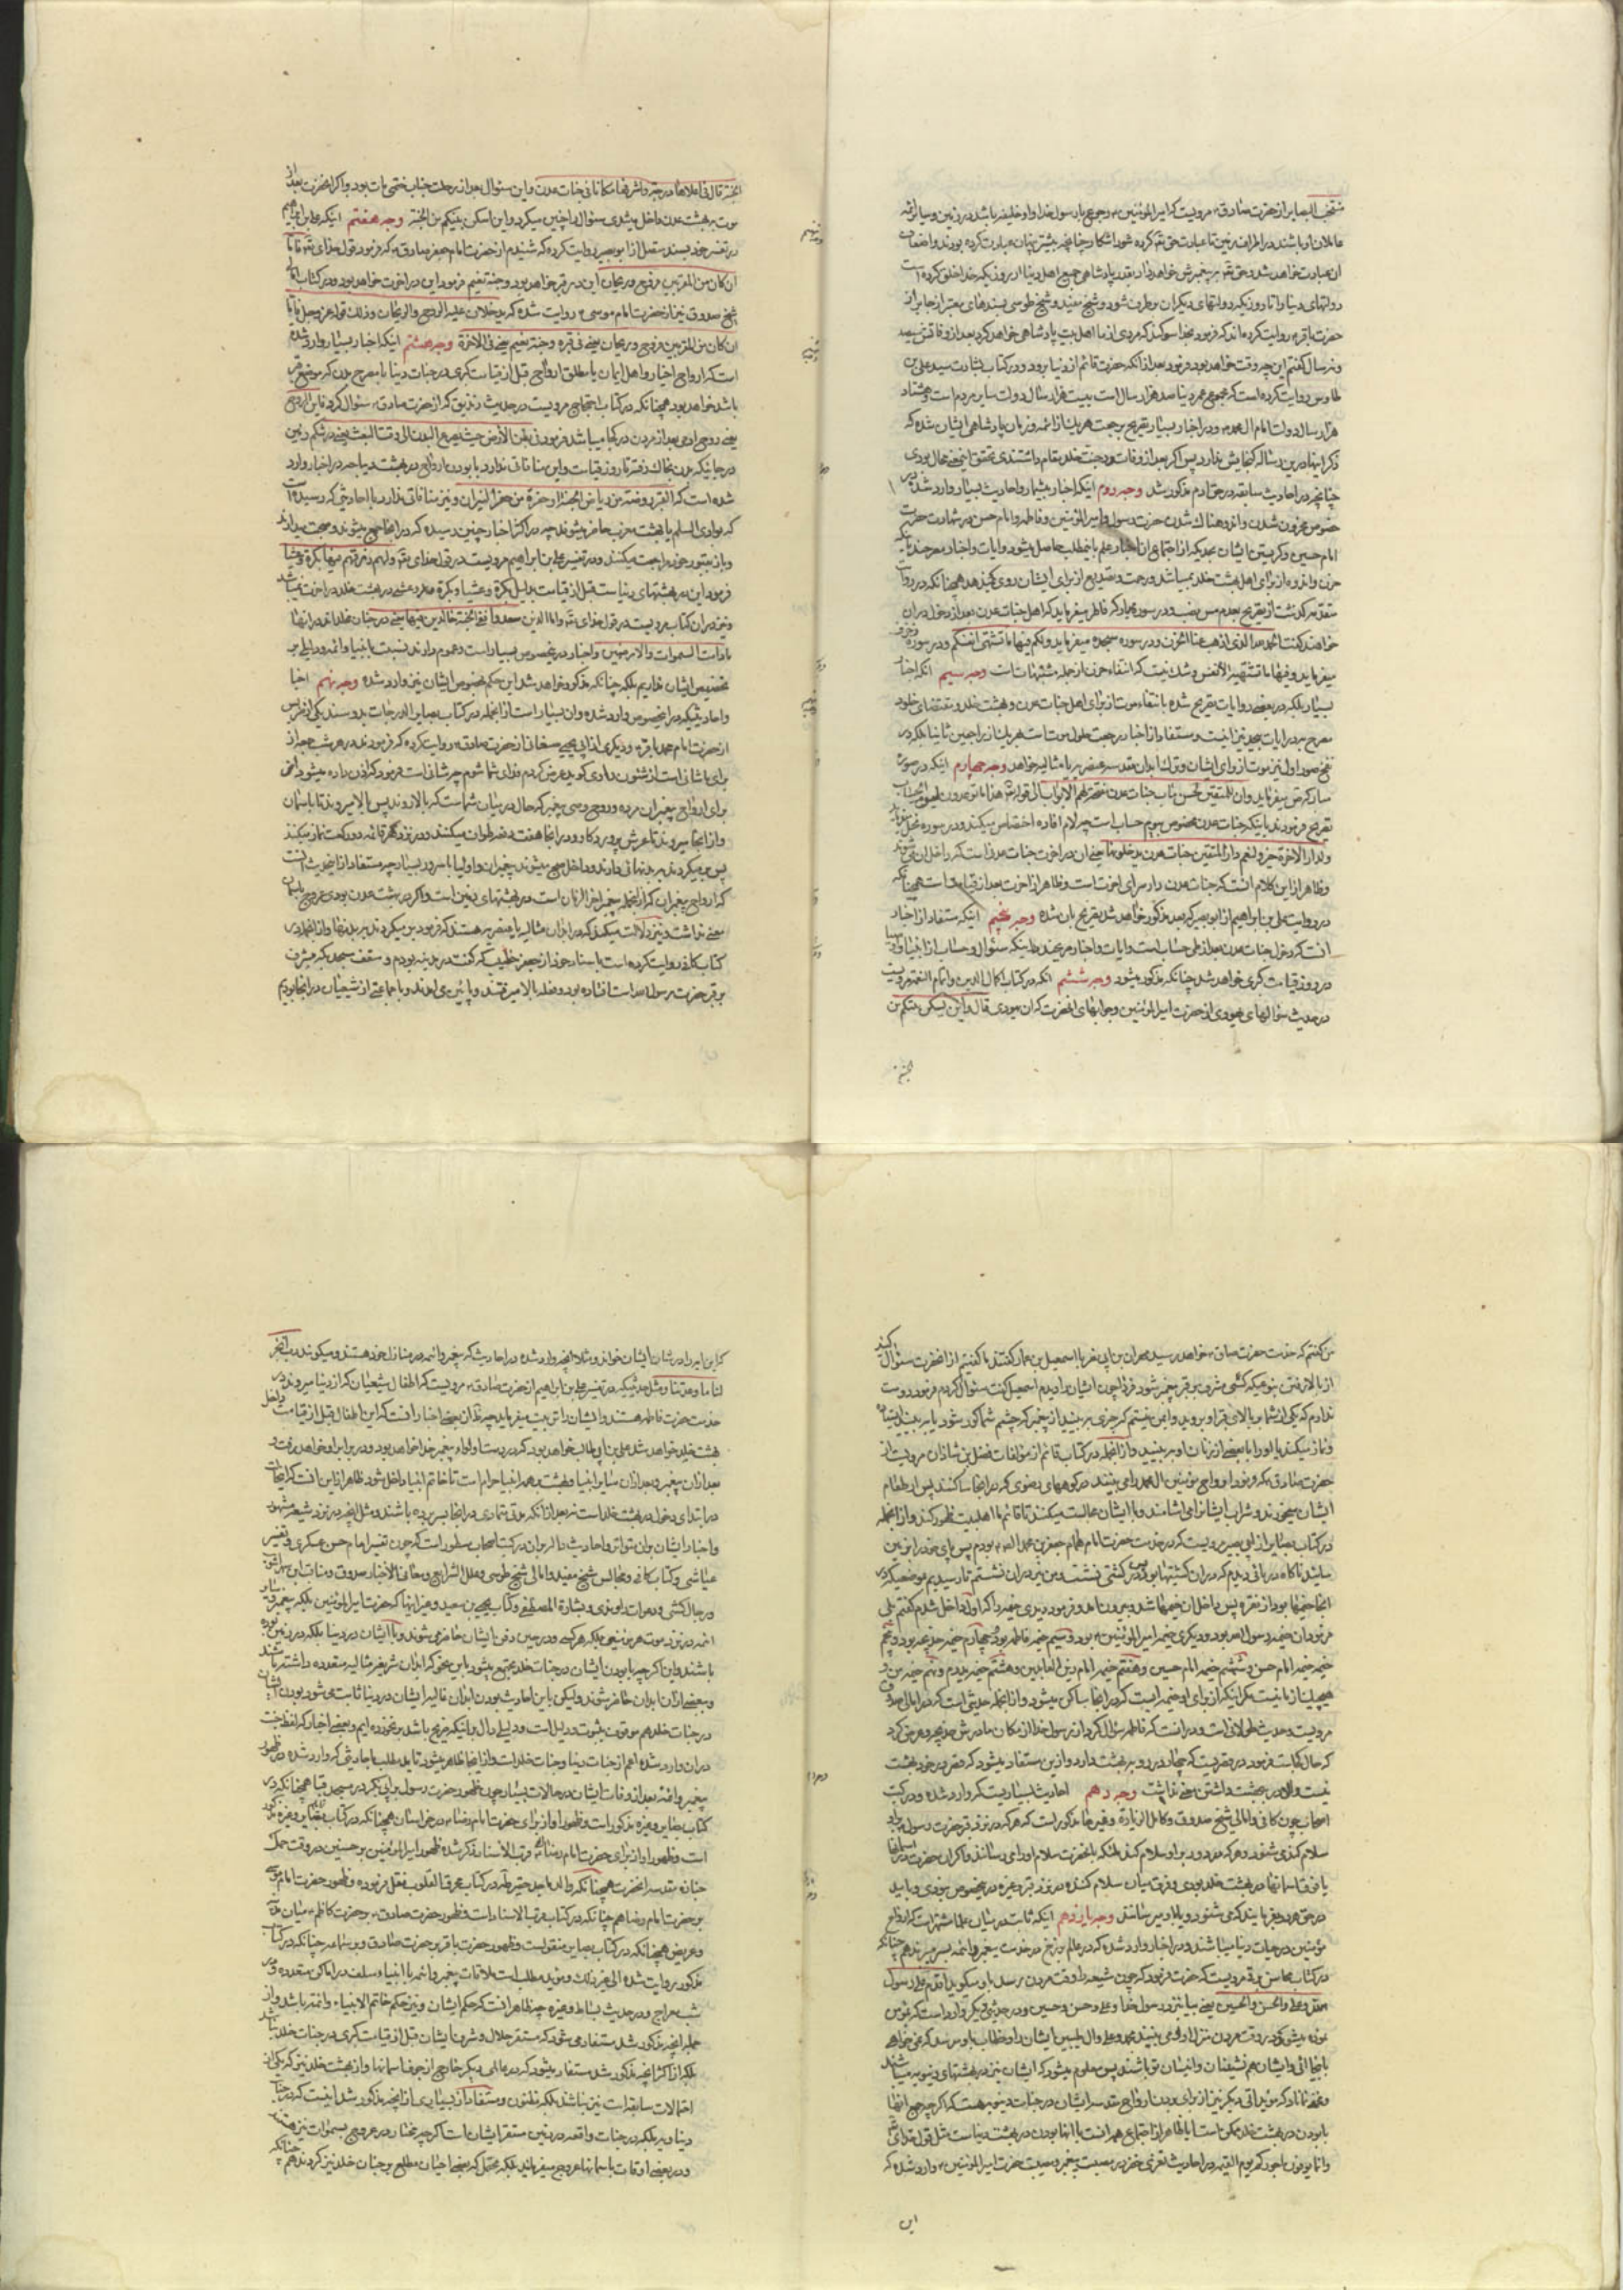 منتخب البصایر از حضرت صادق مرویست که امیر المؤمنین رجوع با رسول خدا و او خلیفه باشد در زمین و سایر ائمه
عاملان او باشند در اطراف زمین تا عبادت حق تع کرده شود آشکارا چنانچه پیشتر پنهان عبادت کرده بودند و اضعاف
آن عبادت خواهد شد و حق تع به پیغمبرش خواهد داد بقدر پادشاهی جمیع اهل دنیا از روزیکه خدا خلق کرده است
دولتهای دنیا را تا روزیکه دولتهای دیگران برطرف شود و شیخ مفید و شیخ طوسی بسندهای معتبر از جابر از
حضرت باقر روایت کرده اند که فرمود بخدا سوگند که مردی از ما اهل بیت پادشاهی خواهد کرد بعد از وفاتش سیصد
و نه سال گفتم این چه وقت خواهد بود فرمود بعد از آنکه حضرت قائم از دنیا برود و در کتاب بشارت سید علی بن
طاوس روایت کرده است که مجموع عمر دنیا صد هزار سال است بیست هزار سال دولت سایر مردم است و هشتاد
هزار سال دولت امام آل محمد و در اخبار بسیار تصریح برجعت هر یک از ائمه و زمان پادشاهی ایشان شده که
ذکر اینها در این رساله گنجایش ندارد پس اگر بعد از وفات در جنت خلد مقام داشتندی تحقق این معنی محال بودی
چنانچه در احادیث سابقه در حق آدم مذکور شد وجه دوم اینکه اخبار بیشمار و احادیث بسیار وارد شده در
خصوص محزون شدن و اندوهناک شدن حضرت رسول و امیر المؤمنین و فاطمه و امام حسن در شهادت حضرت
امام حسین و گریستن ایشان بحدیکه از اجتماع آن اخبار علم باینمطلب حاصل میشود و آیات و اخبار مصرحند باینکه
حزن و اندوه از برای اهل بهشت خلد نمیباشد
خواهند گفت الحمد لله الذی اذهب عنا الحزن و در سوره سجده میفرماید و لکم فیها ما تشتهی انفسکم و در سوره زخرف
میفرماید و فیها ما تشتهیه الانفس و شک نیست که انتفاء حزن از جمله مشتهیات است وجه سیم آنکه اخبار
بسیار بلکه در بعضی روایات تصریح شده بانتفاء موت از برای اهل جنات عدن و بهشت خلد و مقتضای خلود
نفخ صور اول نیز موت از برای ایشان وجه چهارم اینکه در سوره
مبارکه ص میفرماید و ان للمتقین لحسن مآب جنات عدن مفتحة لهم الابواب الی قوله تع هذا ما توعدون لیوم الحساب
تصریح فرمودند باینکه جنات عدن مخصوص بیوم حساب است چه لام افاده اختصاص میکند و در سوره نحل میفرماید
و لدار الاخرة خیر و لنعم دار المتقین جنات عدن یدخلونها یعنی آن دار آخرت جنات عدن است که داخل آن میشوند
و ظاهر از این کلام آنست که جنات عدن دار سرای آخرت است و ظاهر از آخرت بعد از قیامت است همچنانکه
در روایت علی بن ابراهیم از ابو بصیر که بعد مذکور خواهد شد تصریح بآن شده وجه پنجم اینکه مستفاد از اخبار
آنست که دخول جنات عدن بعد از طی حساب است و آیات و اخبار مصرحند باینکه سؤال و حساب از انبیا و اوصیا
در روز قیامت کبری خواهد شد چنانکه مذکور میشود وجه ششم آنکه در کتاب اکمال الدین و اتمام النعمه مرویست
در حدیث سؤالهای یهودی از حضرت امیر المؤمنین و جوابهای آنحضرت که آن یهودی قال و این یسکن نبیکم من
الجنة
الجنة قال فی اعلاها درجة و اشرفها مکانا فی جنات عدن و این سئوال بعد از رحلت جناب ختمی مآب بود و اگر آنحضرت بعد از
موت به بهشت عدن داخل میشدی سئوال را چنین میکرد و این اسکن نبیکم من الجنة وجه هفتم اینکه علی بن ابراهیم
در تفسیر خود بسند متصل از ابو بصیر روایت کرده که شنیدم از حضرت امام جعفر صادق که فرمود قول خدای تع فاما
ان کان من المقربین فروح و ریحان این در قبر خواهد بود و جنة نعیم فرمود این در آخرت خواهد بود و در کتاب امالی
شیخ صدوق نیز از حضرت امام موسی روایت شده
ان کان من المقربین فروح و ریحان یعنی فی قبره و جنة نعیم یعنی فی الآخرة وجه هشتم اینکه اخبار بسیار وارد شده
است که ارواح اخیار و اهل ایمان یا مطلق ارواح قبل از قیامت کبری در جنات دنیا
باشد خواهد بود همچنانکه در کتاب احتجاج مرویست در حدیث زندیق که از حضرت صادق سئوال کرد فاین الروح
یعنی روح آدمی بعد از مردن در کجا میباشد فرمود فی بطن الارض حیث مصرع البدن الی وقت البعث یعنی در شکم زمین
در جائیکه بدن بخاک رفته تا روز قیامت و این منافاتی ندارد با بودن ارواح در بهشت دنیا چه در اخبار وارد
شده است که القبر روضة من ریاض الجنة او حفرة من حفر النیران و نیز منافاتی ندارد با احادیثی که رسیده است
که بوادی السلم یا بهشت مغرب حاضر میشوند چه در اکثر اخبار چنین رسیده که در آنجا جمع میشوند و صحبت میدارند
و باز بقبور خود مراجعت میکنند و در تفسیر علی بن ابراهیم مرویست در قول خدای تع و لهم رزقهم فیها بکرة و عشیا
فرمود این در بهشتهای دنیاست قبل از قیامت بدلیل بکرة و عشیا و بکره و عشی در بهشت خلد در آخرت نمیباشد
و نیز در آن کتاب مرویست در قول خدای تع و اما الذین سعدوا ففی الجنة خالدین فیها یعنی در جنان
ما دامت السموات و الارض و اخبار در اینخصوص بسیار است و عموم دارند نسبت بانبیا و ائمه و دلیلی بر
تخصیص ایشان نداریم بلکه چنانکه مذکور خواهد شد این حکم بخصوص ایشان نیز وارد شده وجه نهم اخبار
و احادیثیکه در اینخصوص وارد شده و آن بسیار است از آنجمله در کتاب بصایر الدرجات بدو سند یکی از
از حضرت امام محمد باقر و دیگری از ابی یحیی صنعانی از حضرت صادق روایت کرده که فرمودند در هر شب جمعه از
برای ما شانی است از شئون راوی گوید عرض کردم فدای شما شوم چه شانی است فرمود که اذن داده میشود از
برای ارواح پیغمبران مرده و روح وصی پیغمبر که حال در میان شما است که بالا روند پس بالا میروند تا باسمان
و از آنجا میروند تا عرش پروردگار و در آنجا هفت دفعه طواف میکنند و در نزد هر قائمه دو رکعت نماز میکنند
پس برمیگردند به بدنهائی دارند و داخل صبح میشوند پیغمبران و اولیا با سرور بسیار چه مستفاد از اینحدیث آنست
که ارواح پیغمبران که از آنجمله پیغمبر آخر الزمان است در بهشتهای زمین است و اگر در بهشت عدن بودی عروج باسمان
معنی نداشت و نیز دلالت میکند که در ابدان مثالیه یا عنصریه هستند که فرمود برمیگردند به بدنها و از آنجمله در
کتاب کافی روایت کرده است باسناد خود از جعفر خطیب که گفت در مدینه بودم و سقف مسجد که مشرف
بر قبر حضرت رسول الله است افتاده بود و فعله بالا میرفتند و پائین می آمدند و با جماعتی از شیعیان در آنجا بودیم
من گفتم که خدمت حضرت صادق خواهد رسید مهران بن ابی نصر یا اسمعیل بن عمار گفتند ما گفتیم از آنحضرت سئوال کنید
از بالا رفتن بنوعیکه کسی مشرف بر قبر پیغمبر شود فردا چون ایشان را دیدم اسمعیل گفت سئوال کردم فرمود دوست
ندارم که یکی از شما بر بالای قبر او بروید و ایمن نیستم که چیزی ببیند از پیغمبر که چشم شما کور شود یا ببیند ایستاده
و نماز میکند یا او را با بعضی از زنان او ببینید و از آنجمله در کتاب قائم از مؤلفات فضل بن شاذان مرویست از
حضرت صادق که فرمود ارواح مؤمنین آل محمد را می بینند در کوههای رضوی که در آنجا ساکنند پس از طعام
ایشان میخورند و شراب ایشان را می آشامند و با ایشان مجالست میکنند تا قائم ما اهلبیت ظهور کند و از آنجمله
در کتاب بصایر از ابی بصیر مرویست که در خدمت حضرت امام همام جعفر بن عبد الله بودم پس پای خود را بزمین
مالید ناگاه دریائی دیدم که در آن کشتیها بود پس در کشتی نشست و من نیز در آن نشستم تا رسیدیم بموضعیکه در
آنجا خیمها بود از نقره پس داخل آن خیمها شد و بیرون آمد و فرمود دیدی خیمه را که اول داخل شدم گفتم بلی
فرمود آن خیمه رسول الله بود و دیگری خیمه امیر المؤمنین بود و سیم خیمه فاطمه بود و چهارم خیمه خدیجه بود و پنجم
خیمه امام حسن و ششم خیمه امام حسین و هفتم خیمه امام زین العابدین و هشتم خیمه پدرم و نهم خیمه من و
هیچیک از ما نیست مگر اینکه از برای او خیمه ایست که در آنجا ساکن میشود و از آنجمله حدیثی است که در امالی صدوق
مرویست و حدیث طولانی است و در آنست که فاطمه سؤال کرد از رسول خدا از مکان مادرش خدیجه و عرض کرد
که حال کجاست فرمود در قصریست که چهار در رو به بهشت دارد و از این مستفاد میشود که قصر در خود بهشت
نیست و الا در ببهشت داشتن معنی نداشت وجه دهم احادیث بسیاریست که وارد شده و در کتب
اصحاب چون کافی و امالی شیخ صدوق و کامل الزیارة و غیرها مذکور است که هر که در نزد قبر حضرت رسول بر او
سلام کند می شنود و هر که از دور بر او سلام کند ملائکه بآنحضرت سلام او را می رسانند و اگر آن حضرت در آسمانها
یا فوق آسمانها در بهشت خلد بودی فرق میان سلام کننده در نزد قبر و غیره در اینخصوص نبودی و بایست
در حق هر دو بفرماید که می شنود و یا باو میرسانند وجه یازدهم اینکه ثابت در میان علما مشهور است که ارواح
مؤمنین در جنات دنیا میباشند و در اخبار وارد شده که در عالم برزخ در خدمت پیغمبر و ائمه بسر میبرند هم چنانکه
در کتاب محاسن برقی مرویست که حضرت فرمود که چون شیعه را وقت مردن برسد باو میگوید اقدم علی رسول
الله و علی و الحسن و الحسین یعنی بیا بنزد رسول خدا و علی و حسن و حسین و در حدیثی دیگر وارد است که مؤمن
نوید میشود که در وقت مردن منزل او و می بیند محمد و علی و آل طیبین ایشان را و خطاب باو میرسد که می خواهی
باینجا آئی و ایشان هم نشینان و انیسان تو باشند پس معلوم میشود که ایشان نیز در بهشتهای دنیویه میباشند
و مخفی نماناد که مؤیداتی دیگر نیز از برای بودن ارواح مقدسه ایشان در جنات دنیویه هست که اگر چه جمع آنها
با بودن در بهشت خلد ممکن است اما ظاهر از اجتماع همه آنست با آنها بودن در بهشت دنیاست مثل قول خدای تع
و انما توفون اجورکم یوم القیمة و در احادیث تعزیت خضر در مصیبت پیغمبر و مصیبت حضرت امیر المؤمنین وارد شده که
این
که این ایه را در شان ایشان خواند و مثلا آنچه وارد شده در احادیث که پیغمبر و ائمه در منازل خود هستند و میگویند رب انجز
لنا ما وعدتنا و مثل حدیثیکه در تفسیر علی بن ابراهیم از حضرت صادق مرویست که اطفال شیعیان که از دنیا میروند در
خدمت حضرت فاطمه هستند و ایشان را تربیت میفرماید چه ظاهر بعضی اخبار آنست که این اطفال قبل از قیامت داخل
بهشت خلد خواهد شد علی بن ابی طالب خواهد بود که در دست او لواء پیغمبر خدا خواهد بود و در برابر او خواهد رفت و
بعد از آن پیغمبر و بعد از آن سایر انبیا و بهشت بر همه انبیا حرام است تا خاتم انبیا داخل شود ظاهر از این آنست که اینحالت
در ابتدای دخول در بهشت خلد است نه بعد از آنکه مدتی متمادی در آنجا بسر برده باشند و مثل آنچه در نزد شیعه مشهور
و اخبار ایشان بر آن متواتر و احادیث داله بر آن در کتب اصحاب مسطور است که چون تفسیر امام حسن عسکری و تفسیر
عیاشی و کتاب کافی و مجالس شیخ مفید و امالی شیخ طوسی و علل الشرایع و معانی الاخبار صدوق و مناقب ابن شهرآشوب
و رجال کشی و دعوات راوندی و بشارة المصطفی و کتاب یحیی بن سعید و غیر اینها که حضرت امیر المؤمنین بلکه پیغمبر و سایر
ائمه در نزد موت هر مؤمنی بلکه هر کسی و در حین دفن ایشان حاضر می شوند و با ایشان در دنیا بلکه در زمین بوده
باشند و این اگر چه با بودن ایشان در جنات خلد مجتمع میشود باین نحو که ابدان شریفه مثالیه متعدده داشته باشند
و بعضی از آن ابدان حاضر شوند ولیکن باین احادیث بودن ابدان مثالیه ایشان در دنیا ثابت می شود بودن ایشان
در جنات خلد هم موقوف بثبوت و دلیل است و دلیلی دال بر آنکه صریح باشد برنخورده ایم و بعضی اخبار که لفظ جنت
در آن وارد شده اعم از جنات دنیا و جنات خلد است و از اینجا ظاهر میشود تایید مطلب باحادیثی که وارد شده در ظهور
پیغمبر و ائمه بعد از وفات ایشان در حالات بسیار چون ظهور حضرت رسول بر ابی بکر در مسجد قبا همچنانکه در
کتاب بصایر و غیره مذکور است و ظهور او از برای حضرت امام رضا در خراسان همچنانکه در کتاب بصایر و غیره مذکور
است و ظهور او از برای حضرت امام رضا که در قرب الاسناد ذکر شده و ظهور امیر المؤمنین بر حسنین در وقت حمل
جنازه مقدسه آنحضرت همچنانکه والد ماجد حقیر طه در کتاب محرق القلوب نقل فرموده و ظهور حضرت امام موسی
بر حضرت امام رضا هم چنانچه در کتاب قرب الاسناد است و ظهور حضرت صادق بر حضرت کاظم میان مکه
و عریض همچنانکه در کتاب بصایر منقولست و ظهور حضرت باقر بر حضرت صادق و بر سماعه چنانکه در کتاب
مذکور روایت شده الی غیر ذلک و مؤید مطلب است ملاقات پیغمبر و ائمه با انبیاء سلف در اماکن متعدده و در
شب معراج و در حدیث بساط و غیره چه ظاهر آنست که حکم ایشان و نیز حکم خاتم الانبیاء و ائمه باشد و از
جمله آنچه مذکور شد مستفاد می شود که مستقر جلال و شرف ایشان قبل از قیامت کبری در جنات خلد نباشد
بلکه از اکثر آنچه مذکور شد مستفاد میشود که در عالمی دیگر خارج از جوف آسمانها و از بهشت خلد نیز که یکی از
احتمالات سابقه است نیز نباشد بلکه مظنون و مستفاد از بسیاری از آنچه مذکور شد اینست که در جنات
دنیاویه بلکه در جنات واقعه در زمین مستقر ایشان است اگر چه مختار در عروج بسموات نیز هستند
و در بعضی اوقات باسمانها عروج میفرمایند بلکه محتمل که بعضی احیان مطلع بر جنان خلد نیز گردند هم چنانکه